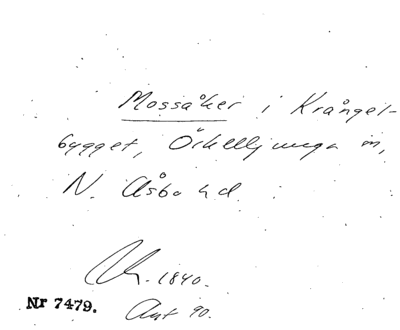 Mossåker i Krångel-
bygget, Örkelljunga sn,
N. Åsbo hd.
1840.
Nr 7479.
Ant 90.